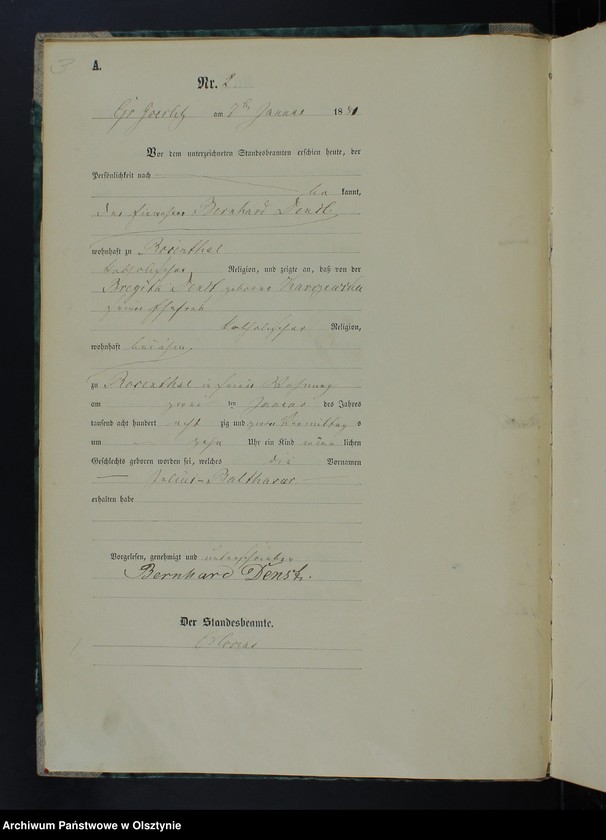 3
A.
Nr. 2
am 7ten Januar 1881
Vor dem unterzeichneten Standesbeamten erschien heute, der
Persönlichkeit nach
be kannt,
der Bernhard
wohnhaft zu Rosenthal
katholischer Religion, und zeigte an, daß von der
geborene
seiner Ehefrau
katholischer Religion,
wohnhaft bei ihm,
zu Rosenthal in seiner Wohnung
am zwei ten Januar des Jahres
tausend acht hundert acht zig und Vormittag s
um zehn Uhr ein Kind männ lichen
Geschlechts geboren worden sei, welches die Vornamen
Julius-Balthasar
erhalten habe
Vorgelesen, genehmigt und unterschrieben
Bernhard
Der Standesbeamte.
Archiwum Państwowe w Olsztynie